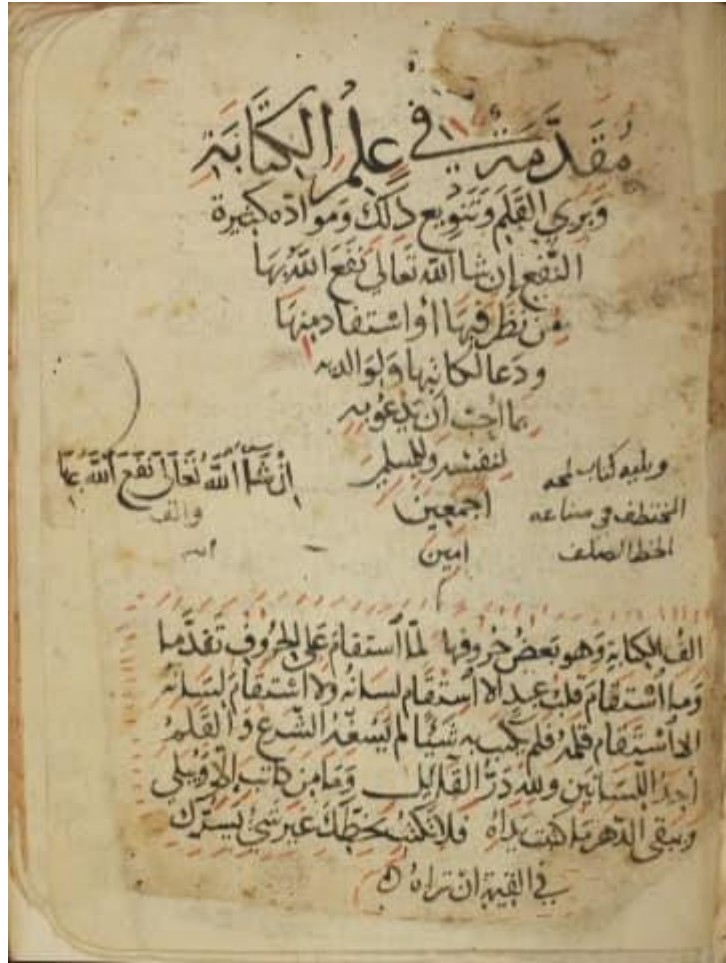 مُقَدَّمَة في عِلْمِ الكِتَابَةِ
وَبَرِي القَلَمِ وَتَنْوِيع ذَلكَ وَمَوادّه كثيرة
النَّفعِ إن شا اللّه تَعَالى نَفَعَ اللّهُ بِهَا
مَن نَظَر فيهَا أو اسْتَفَادَ مِنهَا
وَدَعَا لكاتِبها وَلِوَالديه
بما أحَبّ أن يَدْعُو بِهِ
لنفسه وللمسلمين
اجمعين
امين
ويليه كتاب لمحه
المختطف في صناعه
الخط الصلف
انْ شَآءَ اللّهُ تَعَالَى نَفَعَ اللّه بهَا
والف
الفُ الكِتابةِ وَهو بَعضُ حُروفها لمّا اسْتقامَ عَلى الحُروفِ تَقدَّما
وَما اسْتقامَ قلبُ عبد الا استقام لسانُه ولا اسْتقامَ لسَانه
الا اسْتقام قلمُه فلم يكتب به شيئا لم يَسُغْهُ الشّرع وَالقَلَمُ
أحدُ اللّسَانَين وللّه دَرُّ القَائِل وَمَا مِن كاتبٍ إلّا وَيبلى
ويبقى الدّهر مَا كتبت يَداهُ فلا تكتُبْ بخطِّكَ غير شَيْ يَسُرّكَ
في القيمة أن تراهُ